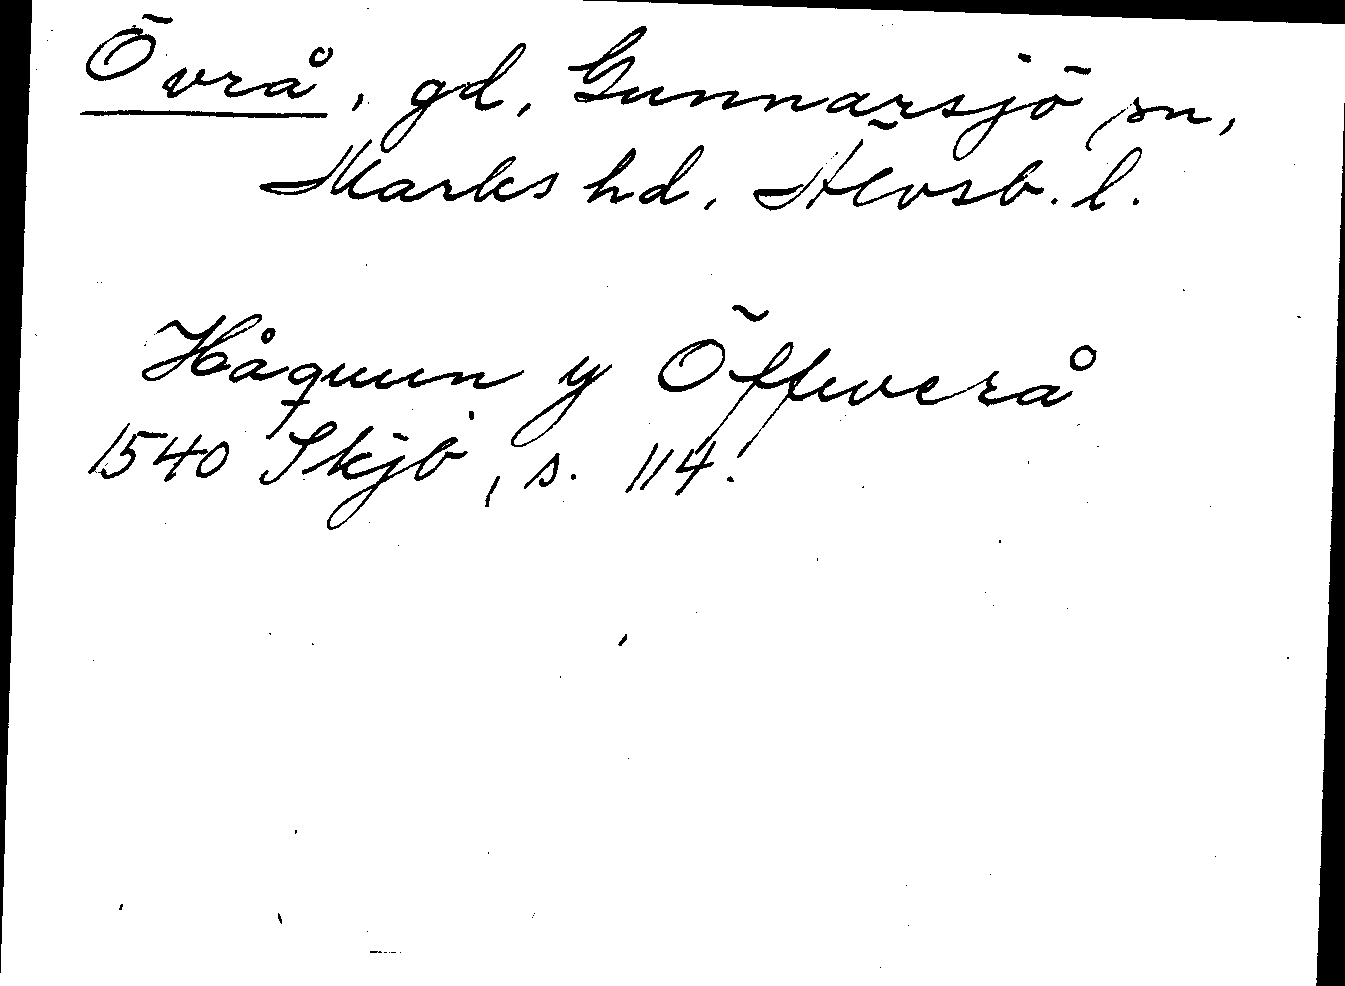 Övrå, gd, Gunnarsjö sn,
Marks hd, Älvsb. l.
Håquun y Öffwerå
1540 Skjb, s. 114.